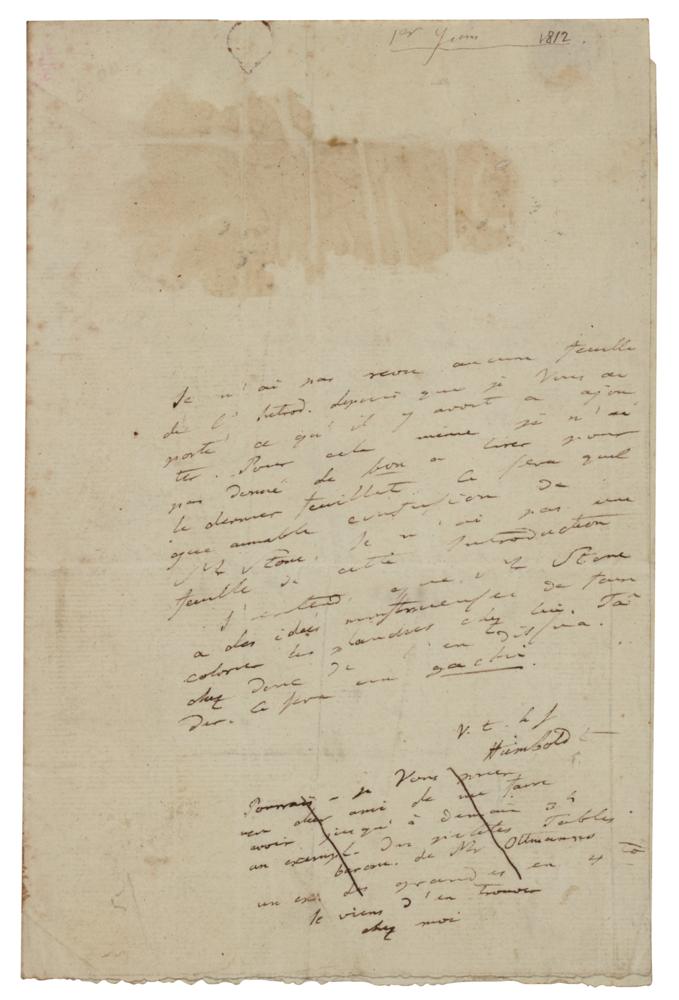 1er Juin 1812.
Je n'ai pas reçu aucune feuille
de l'Introd. depuis que je Vous ai
porté ce qu'il y avoit à ajou
ter. Pour cela même je n'ai
pas donné de bon à tirer pour
le dernier feuillet. Ce sera quel
que aimable confusion de
Mr Stone. Je n'ai pas une
feuille de cette Introduction
J'entends que Mr Stone
a des idées monstrueuses de faire
colorier les planches chez lui. Tâ
chez donc de l'en dissua.
der. Ce sera un gachi.
V. t. h. s
Humboldt
Pourrais-je Vous prier
mon cher ami de me faire
avoir jusqu'à demain 3h
un exempl. des petites Tables
barom. de Mr Oltmanns
un ex. des grandes en 4to
Je viens d'en trouver
chez moi